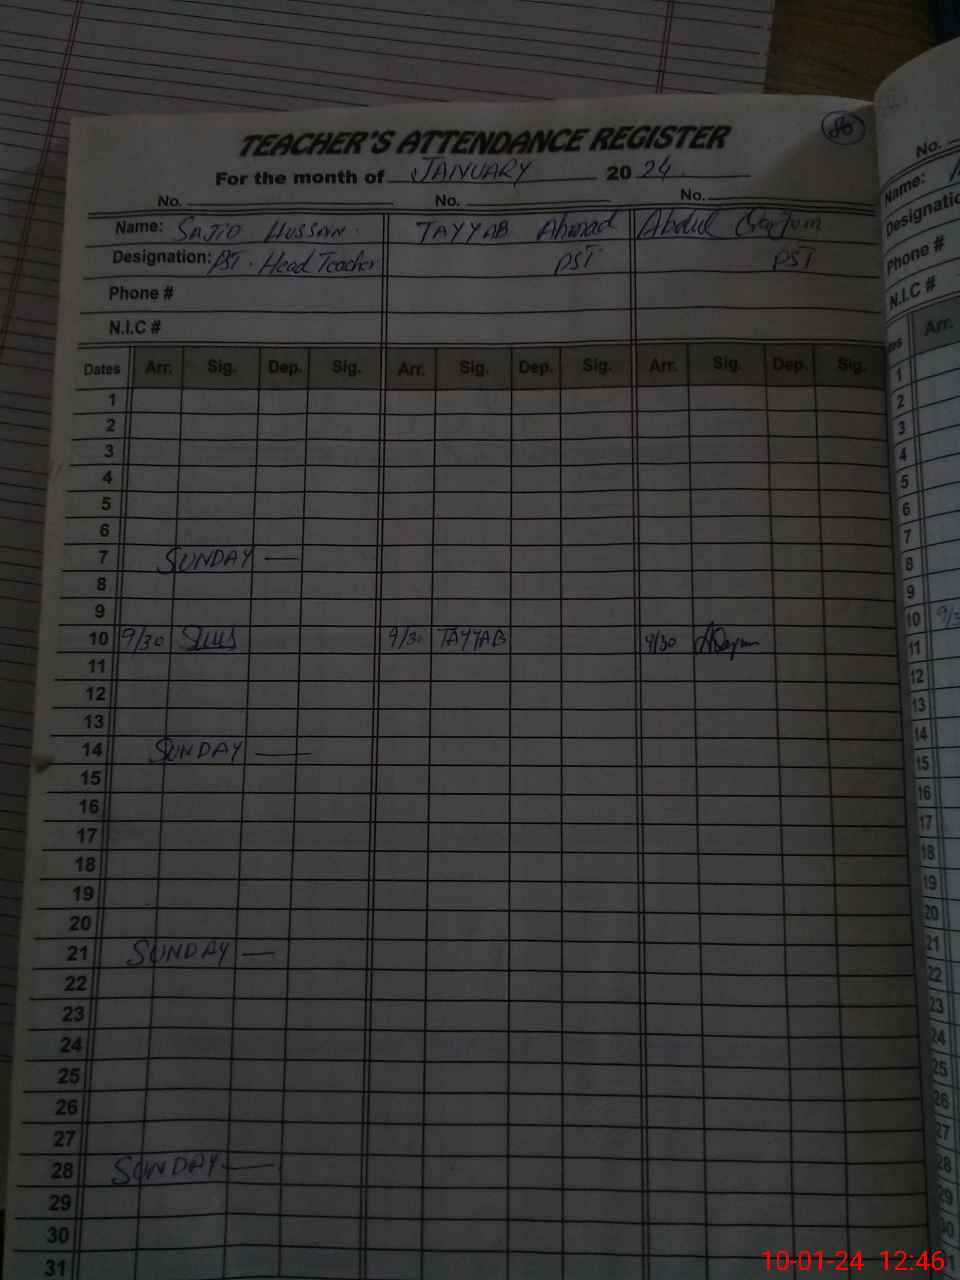 TEACHER'S ATTENDANCE REGISTER
For the month of JANUARY 20 24
No. No. No.
Name: SAJID HUSSAIN. TAYYAB Ahmad Abdul
Designation: PST. Head Teacher PST PST
Phone #
N.I.C #
Dates Arr. Sig. Dep. Sig. Arr. Sig. Dep. Sig. Arr. Sig. Dep. Sig.
1
2
3
4
5
6
7 SUNDAY —
8
9
10 9/30 9/30 TAYYAB 9/30
11
12
13
14 SUNDAY —
15
16
17
18
19
20
21 SUNDAY —
22
23
24
25
26
27
28 SUNDAY —
29
30
31
No.
Name:
Designatio
Phone #
N.I.C #
Arr.
1
2
3
4
5
6
7
8
9
10
11
12
13
14
15
16
17
18
19
20
21
22
23
24
25
26
27
28
29
30
10-01-24 12:46